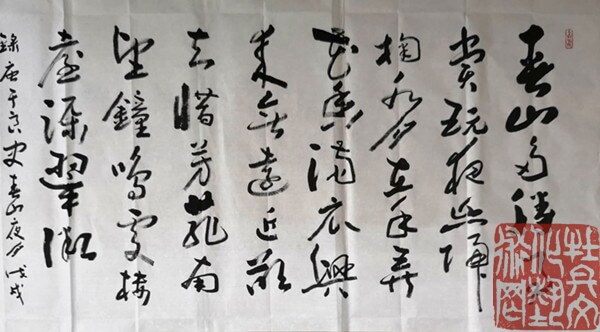 春山多勝事
賞玩夜忘歸
掬水月在手弄
花香滿衣興
來無遠近欲
去惜芳菲南
望鐘鳴處樓
臺深翠微
錄唐于良史春山夜月戊戌